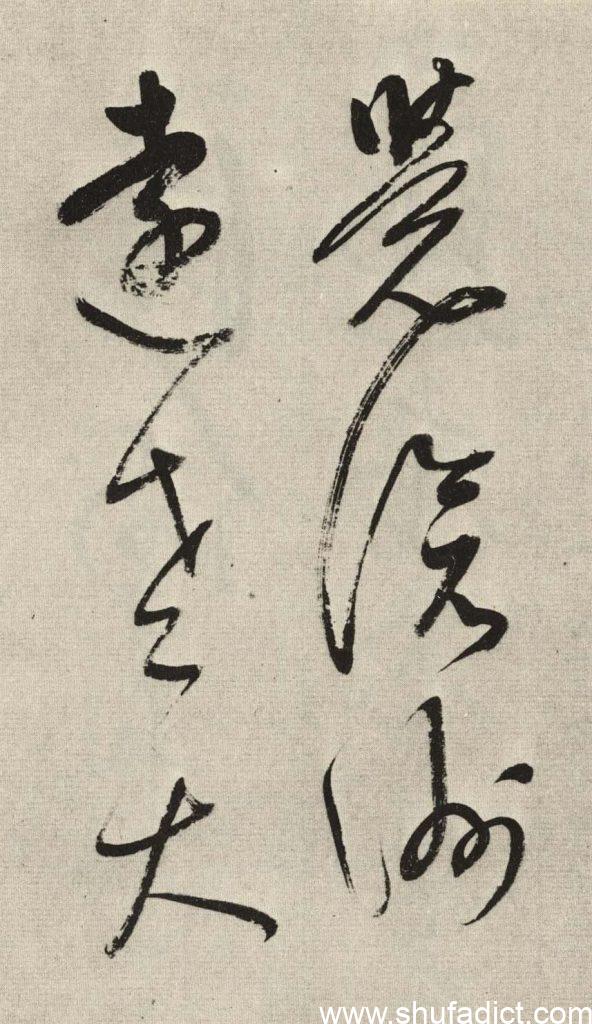 覺滄洲
遠老大
www.shufadict.com